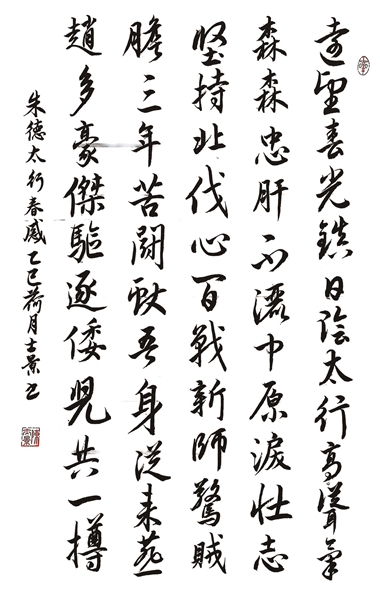 遠望春光鎮日陰太行高聳氣
森森忠肝不灑中原淚壯志
堅持北伐心百戰新師驚賊
膽三年苦鬪献吾身從来燕
趙多豪傑驅逐倭児共一樽
朱德太行春感乙巳荷月士景书